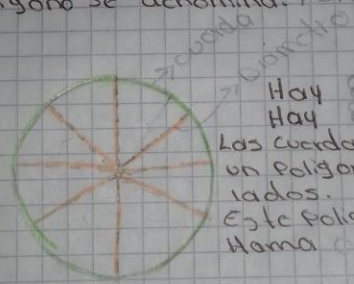 se denomina:
cuerda
Diámetro
Hay
Hay
Las cuerda
un Poligo
lados.
Este Poli
llama